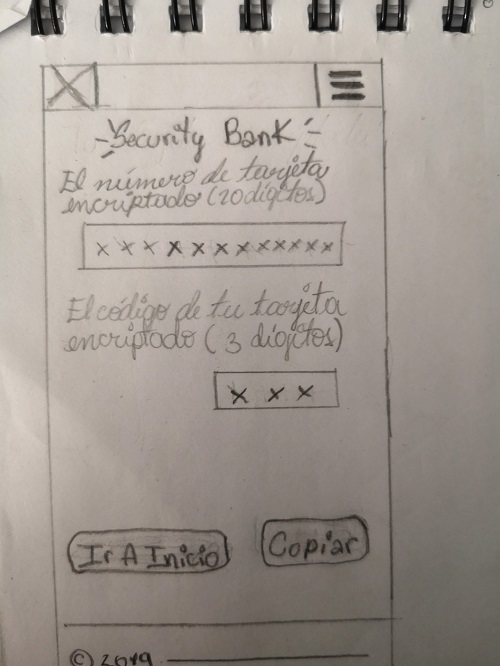 Security Bank
El número de tarjeta
encriptado (20 dígitos)
x x x x x x x x x x x x
El código de tu tarjeta
encriptado ( 3 dígitos)
x x x
Ir A Inicio
Copiar
© 2019